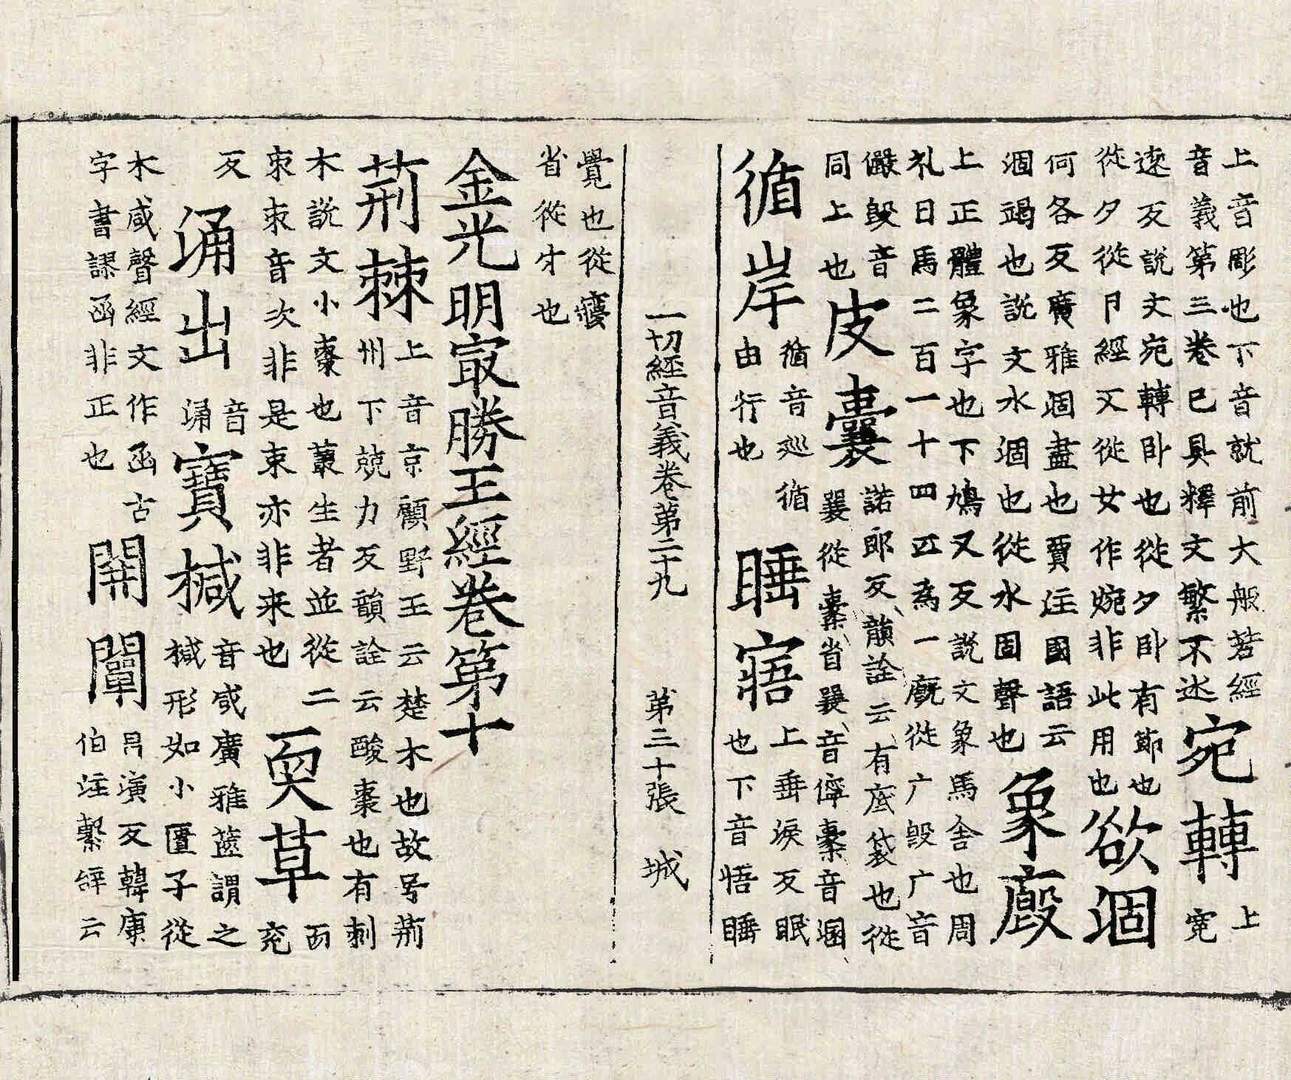 上音彫也下音就前大般若經
音義第三卷已具釋文繁不述
宛轉
上
寃
逺反說文宛轉卧也從夕卧有節也
從夕從卩經文從女作婉非此用也
欲涸
何各反廣雅涸盡也賈注國語云
涸竭也說文水涸也從水固聲也
象廄
上正體象字也下鳩又反說文象馬舍也周
礼曰馬二百一十四匹為一廄從广㲃广音
儼㲃音
同上也
皮囊
諾郎反韻詮云有底袋也從
襄從㯻省襄音儜㯻音溷
循岸
循音巡循
由行也
睡寤
上垂淚反眠
也下音悟睡
一切經音義卷第二十九 第三十張 城
覺也從㝱
省從才也
金光明㝡勝王經卷第十
荊棘
上音京顧野王云楚木也故号荊
州下兢力反韻詮云酸棗也有刺
木說文小棗也叢生者並從二
朿朿音次非是束亦非来也
耎草
而
兖
反
涌出
音
涌
寶椷
音咸廣雅篋謂之
椷形如小匱子從
木咸聲經文作函古
字書謬函非正也
開闡
昌演反韓康
伯注繫辭云